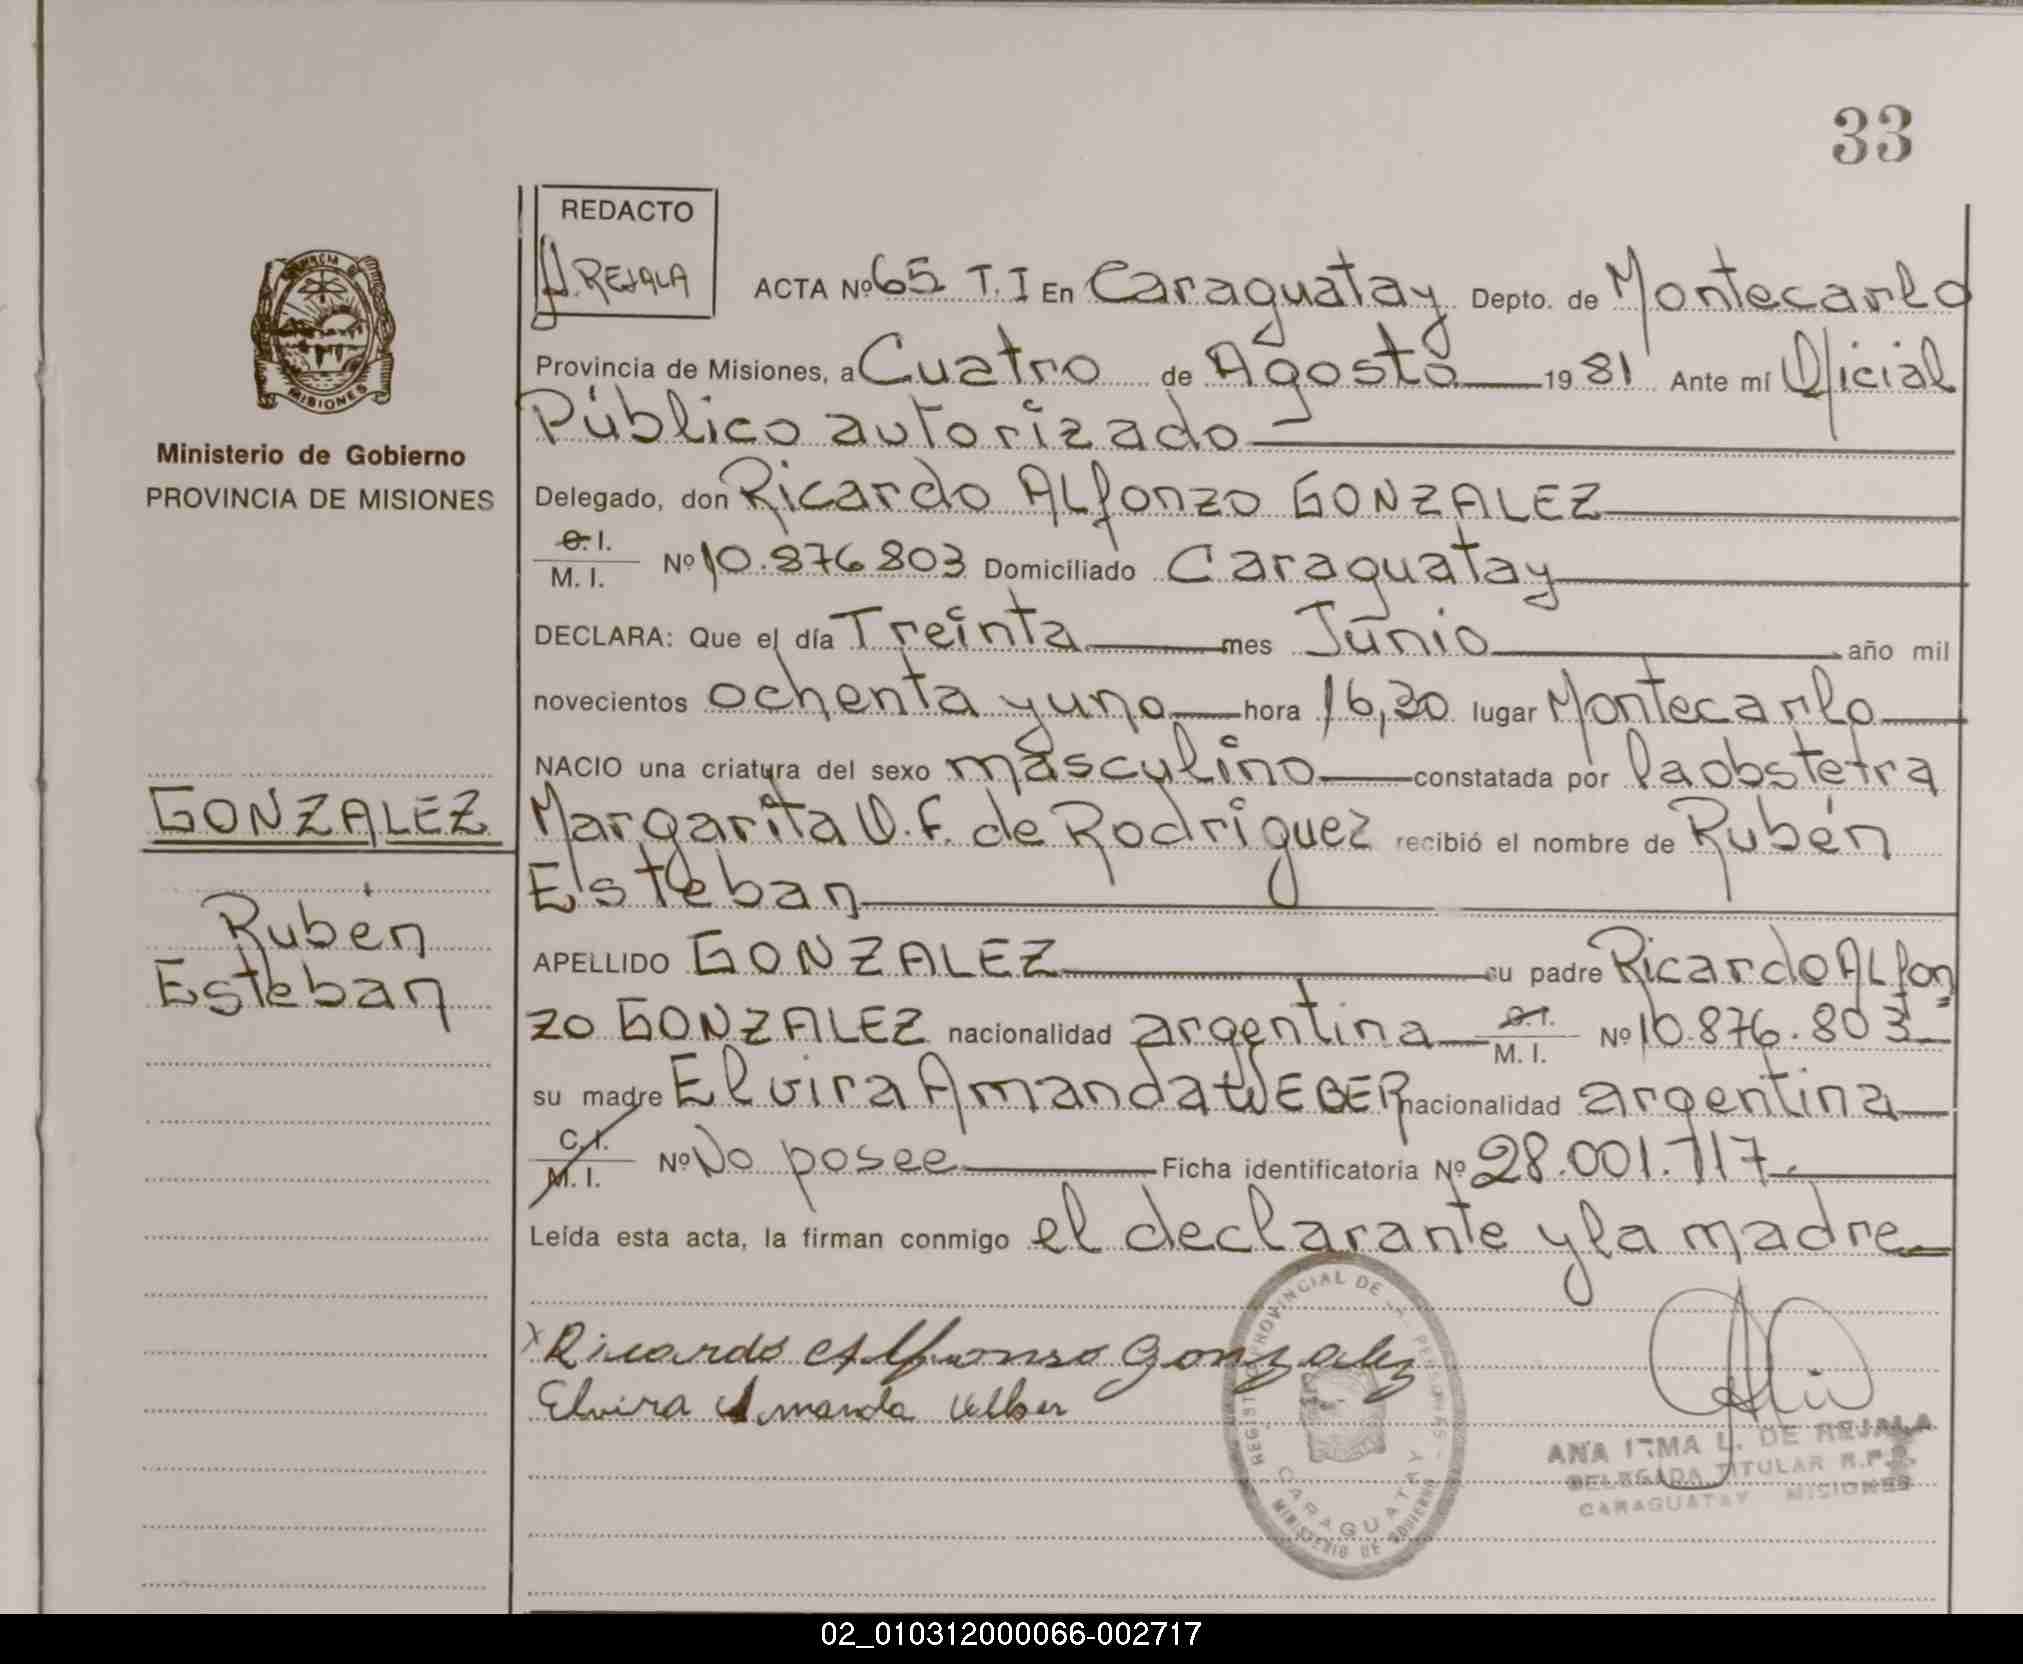 33
REDACTO
REJALA
ACTA Nº 65 T.I En Caraguatay Depto. de Montecarlo
Provincia de Misiones, a Cuatro de Agosto 1981 Ante mí Oficial
Público autorizado
Ministerio de Gobierno
PROVINCIA DE MISIONES
Delegado, don Ricardo ALfonzo GONZALEZ
C. I.
M. I. Nº 10.876.803 Domiciliado Caraguatay
DECLARA: Que el día Treinta mes Junio año mil
novecientos ochenta y uno hora 16,30 lugar Montecarlo
NACIO una criatura del sexo masculino constatada por la obstetra
GONZALEZ
Margarita V. F. de Rodriguez recibió el nombre de Rubén
Esteban
Rubén
Esteban
APELLIDO GONZALEZ su padre Ricardo ALfon
zo GONZALEZ nacionalidad argentina C. I. M. I. Nº 10.876.803
su madre Elvira Amanda WEBER nacionalidad argentina
C. I.
M. I. Nº No posee Ficha identificatoria Nº 28.001.717
Leída esta acta, la firman conmigo el declarante y la madre
x Ricardo Alfonso Gonzalez
Elvira Amanda Weber
REGISTRO PROVINCIAL DE LAS PERSONAS
CARAGUATAY
MINISTERIO DE GOBIERNO
MISIONES
ANA IRMA L. DE REJALA
DELEGADA TITULAR R.P.P.
CARAGUATAY MISIONES
02_010312000066-002717